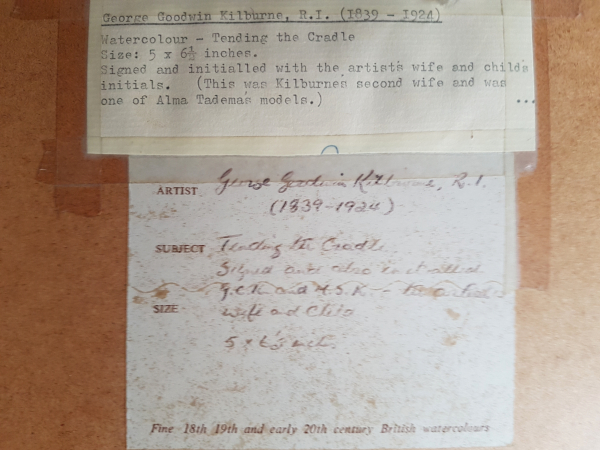 George Goodwin Kilburne, R.I. (1839 - 1924)
Watercolour - Tending the Cradle
Size: 5 x 6½ inches.
Signed and initialled with the artists wife and childs
initials. (This was Kilburnes second wife and was
one of Alma Tademas models.) ...
ARTIST George Goodwin Kilburne, R.I.
(1839-1924)
SUBJECT Tending the Cradle
Signed and also initialled
G.C.K and H.S.K. - the artist
SIZE wife and Child
5 x 6½ inch.
Fine 18th 19th and early 20th century British watercolours